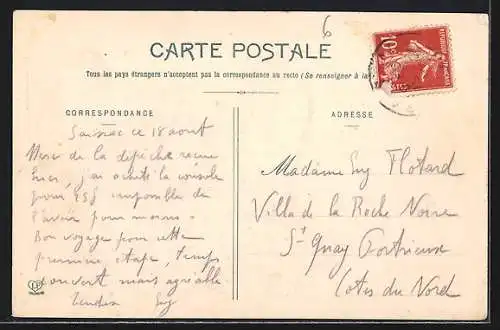 6
CARTE POSTALE
Tous les pays étrangers n'acceptent pas la correspondance au recto (Se renseigner à la
CORRESPONDANCE
ADRESSE
ce 18 aout
Merci de la dépêche recue
hier, j'ai acheté la console
pour 255 impossible de
l'avoir pour moins
Bon voyage pour cette
première étape, temps
couvert mais agréable
Eug
Madame Eug Flotard
Villa de la Roche Noire
St Quay Portrieux
Cotes du Nord
10c
REPUBLIQUE FRANÇAISE
POSTES